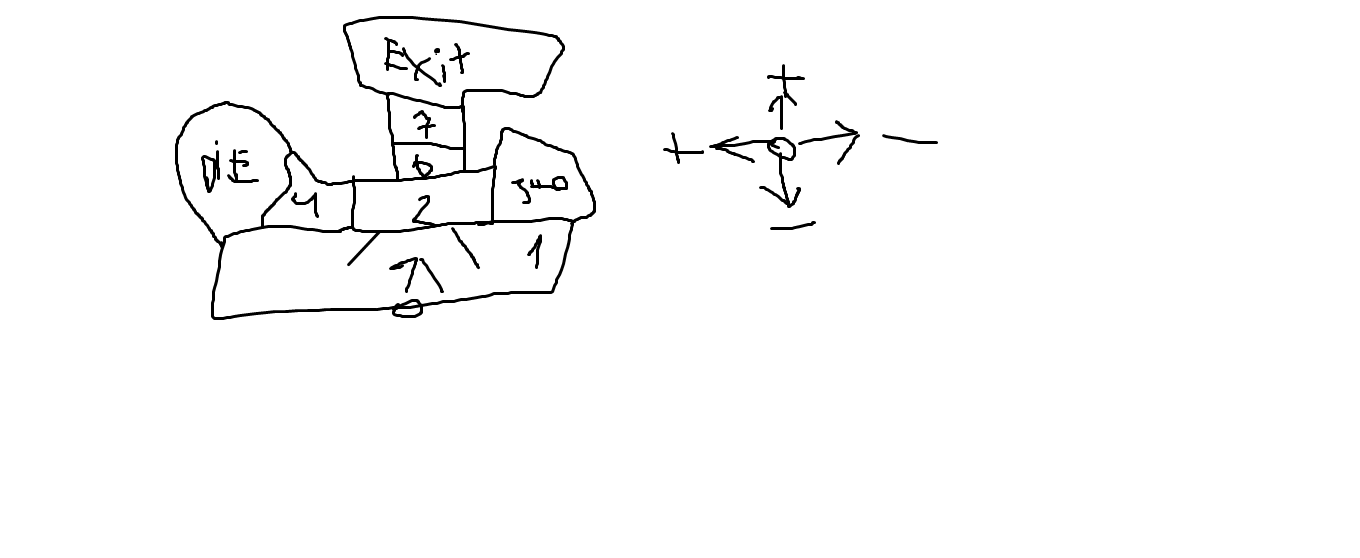 Exit
7
6
DiE
4
2
1
+
+
-
-